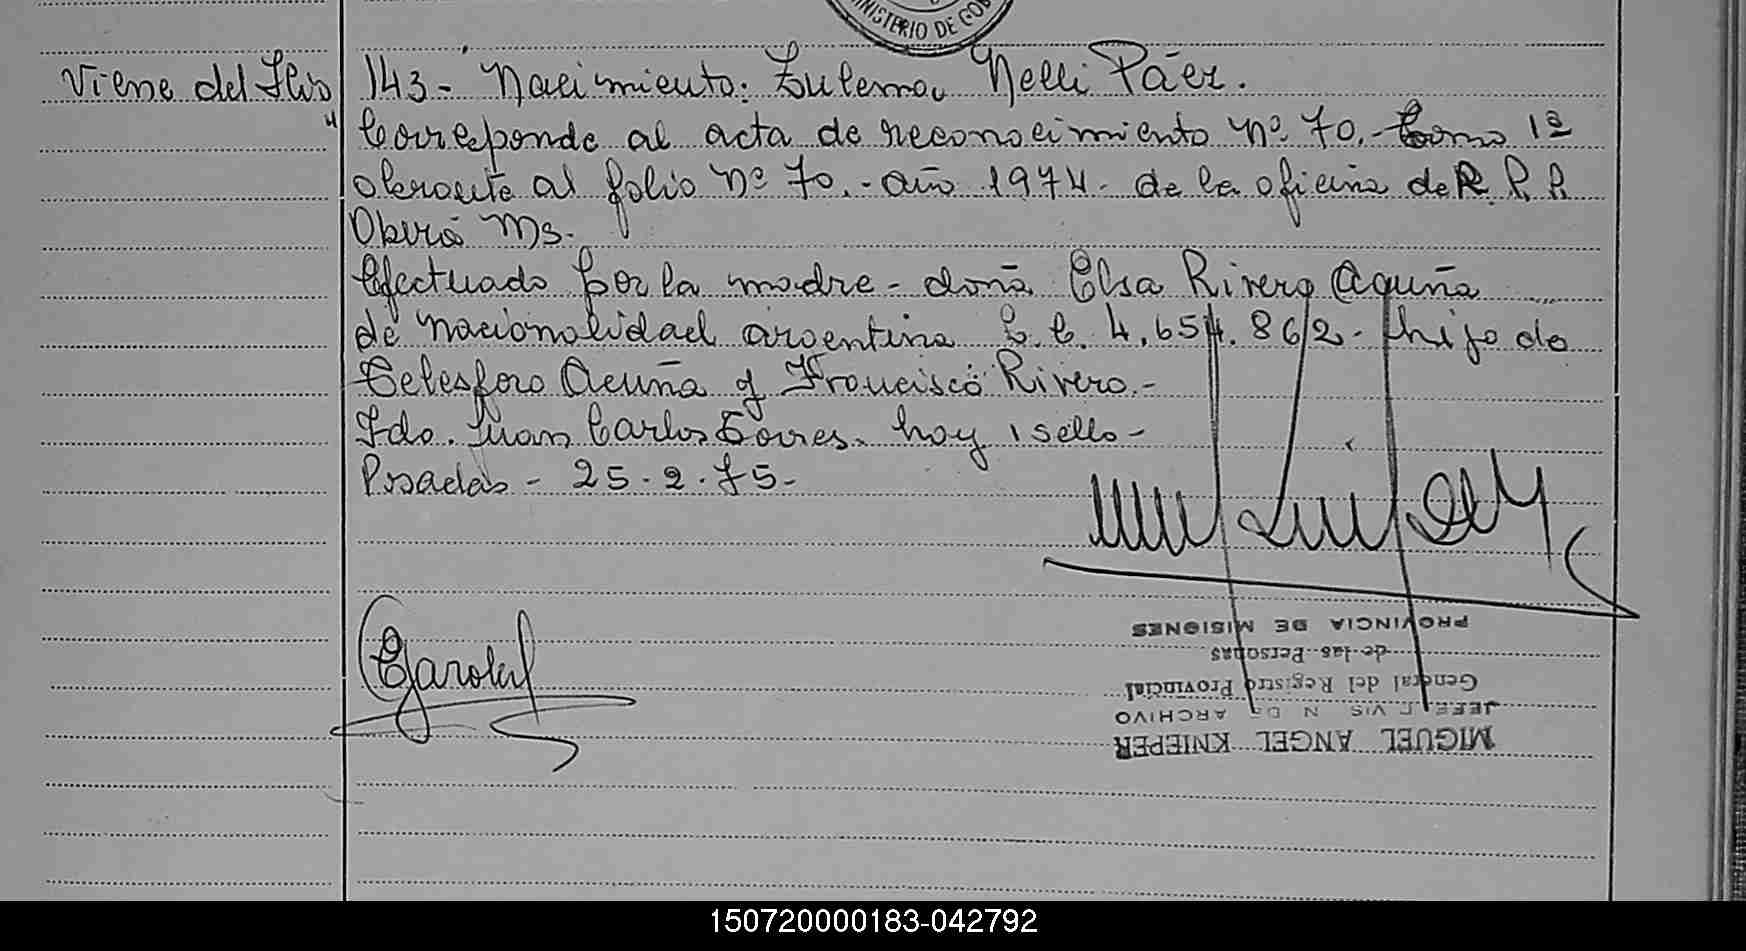 MINISTERIO DE GOB
Viene del Flio 143- Nacimiento: Zulema Nelli Páez.
" Corresponde al acta de reconocimiento nº 70.- tomo 1º
obrante al folio nº 70.- año 1974- de la oficina de R. P. P.
Oberá Ms.
Efectuado por la madre - doña Elsa Rivero Aquña
de nacionalidad argentina L.C. 4.654.862- hija de
Telesforo Acuña y Francisca Rivero.-
Fdo. Juan Carlos Torres. hay 1 sello-
Posadas - 25.2.75-
PROVINCIA DE MISIONES
de las Personas
General del Registro Provincial
JEFE DIVISION DE ARCHIVO
MIGUEL ANGEL KNIEPER
150720000183-042792